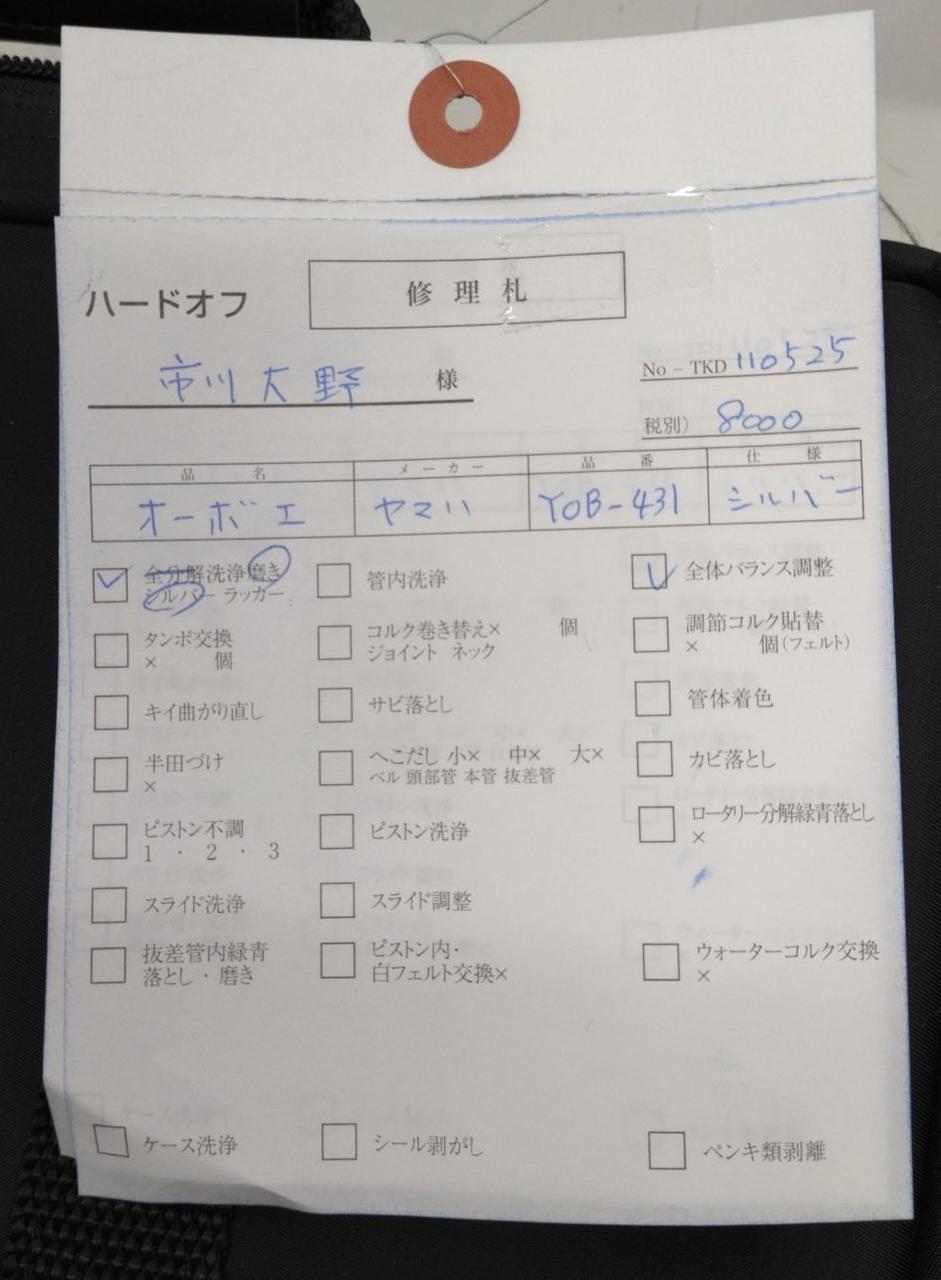 ハードオフ
修理札
市川大野 様
No－TKD 110525
税別） 8000
品名 メーカー 品番 仕様
オーボエ ヤマハ YOB-431 シルバー
全分解洗浄磨き
シルバー ラッカー
管内洗浄
全体バランス調整
タンポ交換
× 個
コルク巻き替え× 個
ジョイント ネック
調節コルク貼替
× 個(フェルト)
キイ曲がり直し
サビ落とし
管体着色
半田づけ
×
へこだし 小× 中× 大×
ベル 頭部管 本管 抜差管
カビ落とし
ピストン不調
1・2・3
ピストン洗浄
ロータリー分解緑青落とし
×
スライド洗浄
スライド調整
抜差管内緑青
落とし・磨き
ピストン内・
白フェルト交換×
ウォーターコルク交換
×
ケース洗浄
シール剥がし
ペンキ類剥離